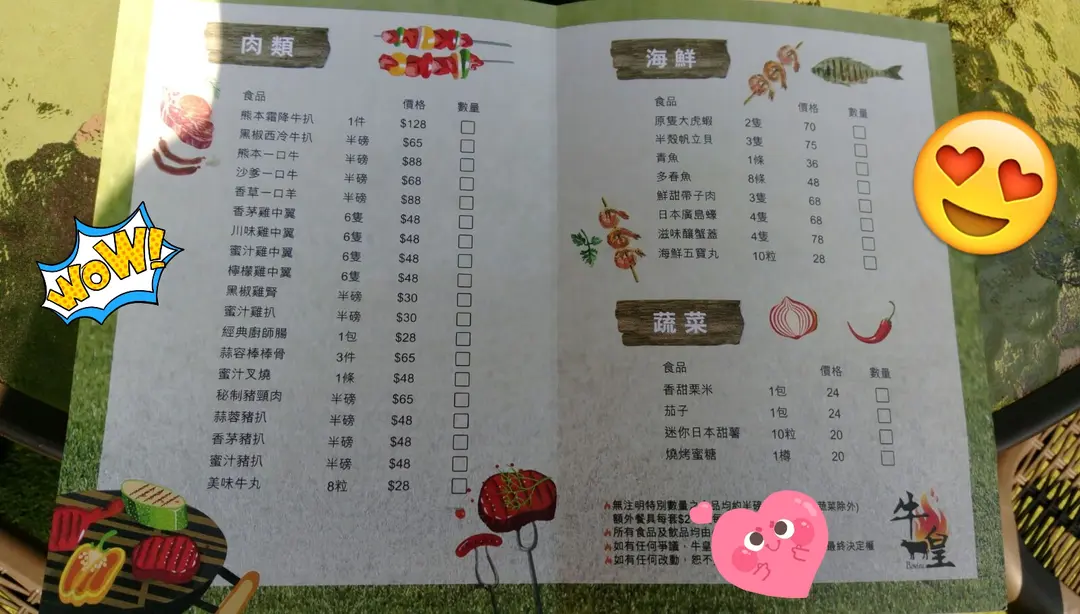 肉類
食品 價格 數量
熊本霜降牛扒 1件 $128
黑椒西冷牛扒 半磅 $65
熊本一口牛 半磅 $88
沙爹一口牛 半磅 $68
香草一口羊 半磅 $88
香茅雞中翼 6隻 $48
川味雞中翼 6隻 $48
蜜汁雞中翼 6隻 $48
檸檬雞中翼 6隻 $48
黑椒雞腎 半磅 $30
蜜汁雞扒 半磅 $30
經典廚師腸 1包 $28
蒜容棒棒骨 3件 $65
蜜汁叉燒 1條 $48
秘制豬頸肉 半磅 $65
蒜蓉豬扒 半磅 $48
香茅豬扒 半磅 $48
蜜汁豬扒 半磅 $48
美味牛丸 8粒 $28
海鮮
食品 價格 數量
原隻大虎蝦 2隻 70
半殼帆立貝 3隻 75
青魚 1條 36
多春魚 8條 48
鮮甜帶子肉 3隻 68
日本廣島蠔 4隻 68
滋味釀蟹蓋 4隻 78
海鮮五寶丸 10粒 28
蔬菜
食品 價格 數量
香甜粟米 1包 24
茄子 1包 24
迷你日本甜薯 10粒 20
燒烤蜜糖 1樽 20
無注明特別數量之 品均約半磅 蔬菜除外)
額外餐具每套$2
所有食品及飲品均由
如有任何爭議，牛皇 最終決定權
如有任何改動，恕不
牛皇
WOW!